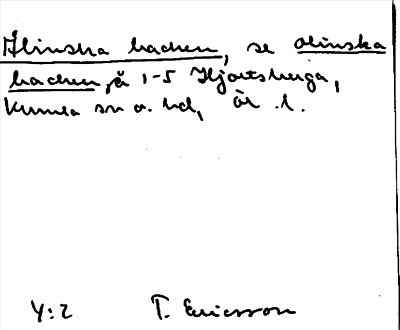 Alinska backen, se olinska
backen, å 1-5 Hjortsberga,
Kumla sn o. hd, Ör. l.
4:2 T. Ericsson